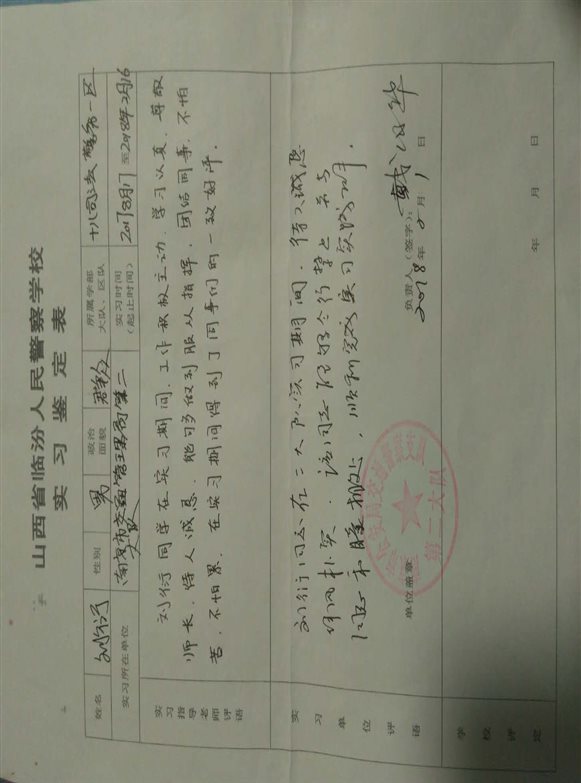 山西省临汾人民警察学校
实习鉴定表
姓名 刘衍 性别 男 政治面貌 群众 所属学部大队、区队 十八司法警务一区
实习所在单位 交通管理局第二大队 实习时间(起止时间) 2017年8月17至2018年2月16
实习指导老师评语
刘衍同学在实习期间,工作积极主动,学习认真,尊敬
师长,待人诚恳,能够做到服从指挥,团结同事,不怕
苦,不怕累,在实习期间得到了同事们的一致好评。
实习单位评语
刘衍同志在二大队实习期间,待人诚恳
作风朴实,该同志
同志和睦相处,顺利完成实习实践工作。
单位盖章:
第二大队
负责人(签字):
2018年2月1日
学校评定
年 月 日